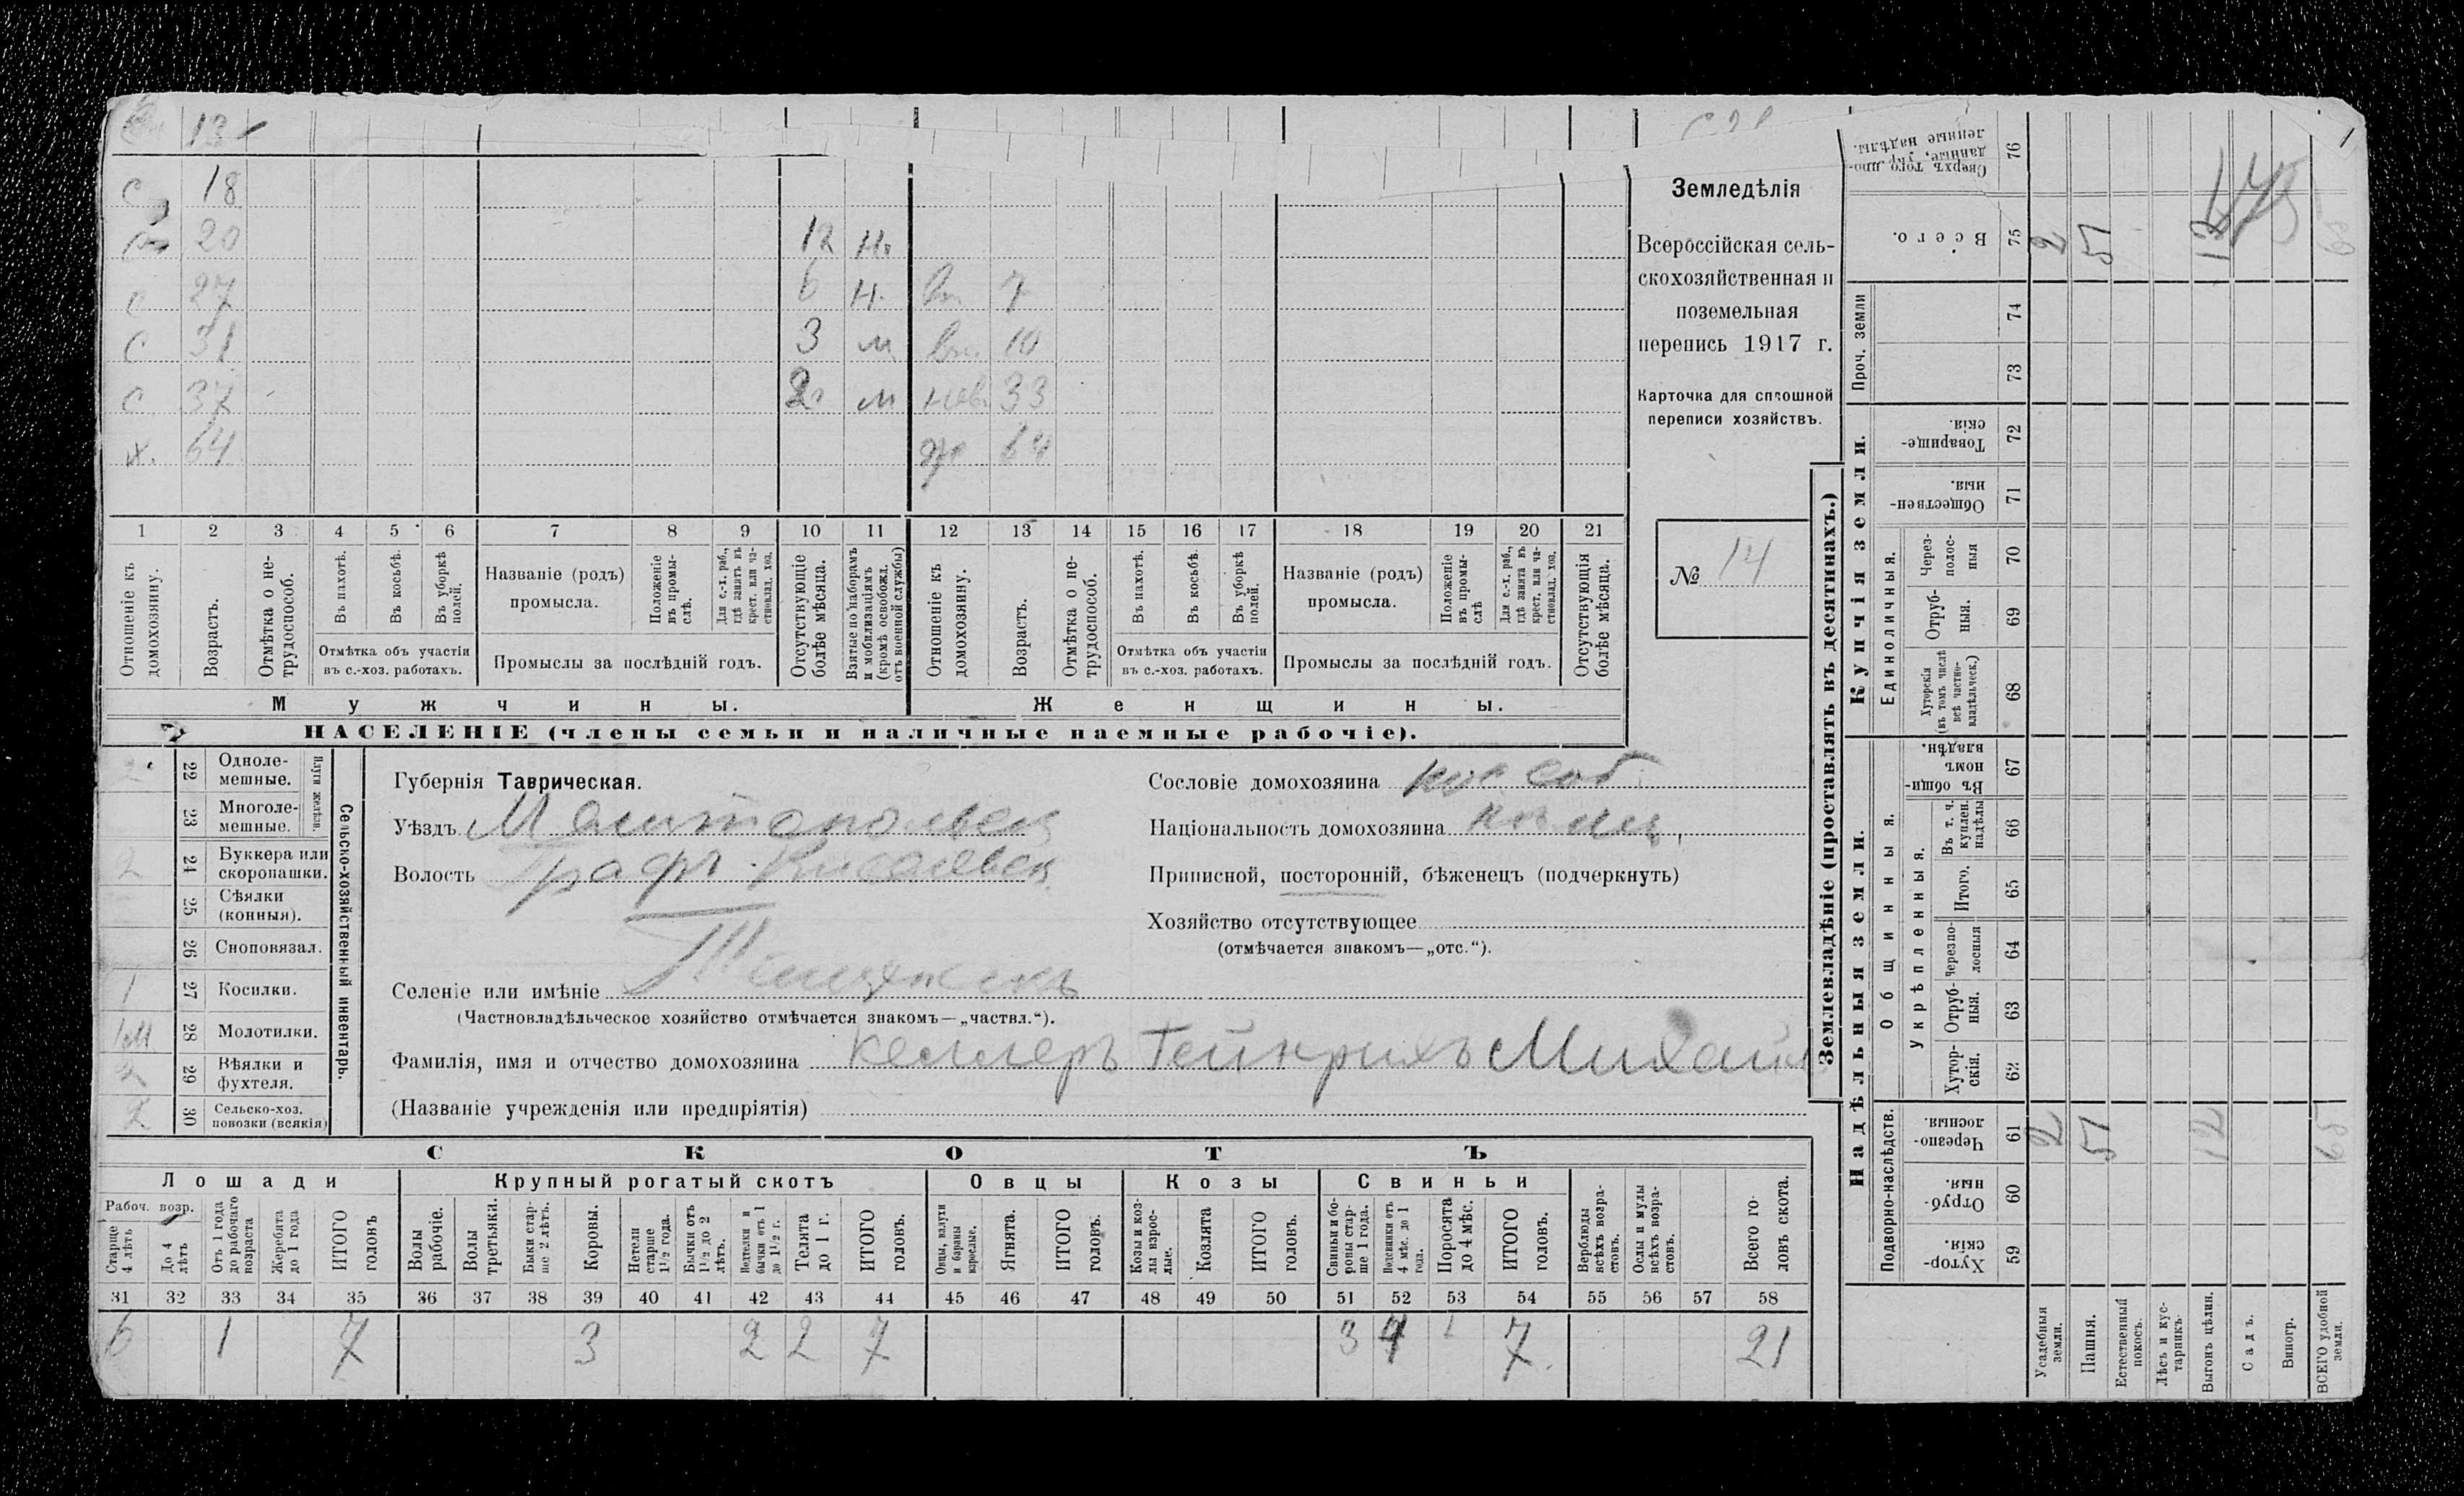 13
С 18
20 12 н.
с 27 6 н. вн. 7
с 31 3 м вн. 10
с 37 2 м нев. 33
х. 64 ж 64
1 2 3 4 5 6 7 8 9 10 11 12 13 14 15 16 17 18 19 20 21
Отношеніе къ домохозяину.
Возрастъ.
Отмѣтка о не-
трудоспособ.
Въ пахотѣ.
Въ косьбѣ.
Въ уборкѣ полей.
Отмѣтка объ участіи
въ с.-хоз. работахъ.
Названіе (родъ)
промысла.
Положеніе
въ промы-
слѣ.
Для с.-х. раб.,
гдѣ занятъ въ
крест. или ча-
стновлад. хоз.
Промыслы за послѣдній годъ.
Отсутствующіе
болѣе мѣсяца.
Взятые по наборамъ
и мобилизаціямъ
(кромѣ освобожд.
отъ военной службы)
Отношеніе къ
домохозяину.
Возрастъ.
Отмѣтка о не-
трудоспособ.
Въ пахотѣ.
Въ косьбѣ.
Въ уборкѣ
полей.
Отмѣтка объ участіи
въ с.-хоз. работахъ.
Названіе (родъ)
промысла.
Положеніе
въ промы-
слѣ
Для с.-х. раб.,
гдѣ занята въ
крест. или ча-
стновлад. хоз.
Промыслы за послѣдній годъ.
Отсутствующія
болѣе мѣсяца.
Мужчины.
Женщины.
НАСЕЛЕНІЕ (члены семьи и наличные наемные рабочіе).
Земледѣлія
Всероссійская сель-
скохозяйственная и
поземельная
перепись 1917 г.
Карточка для сплошной
переписи хозяйствъ.
№ 14
2 22 Одноле-
мешные.
23 Многоле-
мешные.
Плуги желѣзн.
2 24 Буккера или
скоропашки.
25 Сѣялки
(конныя).
26 Сноповязал.
1 27 Косилки.
1м 28 Молотилки.
2 29 Вѣялки и
фухтеля.
2 30 Сельско-хоз.
повозки (всякія)
Сельско-хозяйственный инвентарь.
Губернія Таврическая.
Уѣздъ Мелитопольск
Волость
Селеніе или имѣніе
(Частновладѣльческое хозяйство отмѣчается знакомъ—„частвл.“).
Фамилія, имя и отчество домохозяина Келлеръ Гейнрихъ Михайл
(Названіе учрежденія или предпріятія)
Сословіе домохозяина пос соб
Національность домохозяина нѣмц.
Приписной, посторонній, бѣженецъ (подчеркнуть)
Хозяйство отсутствующее
(отмѣчается знакомъ—„отс.“).
СКОТЪ
Лошади
Крупный рогатый скотъ
Овцы
Козы
Свиньи
Рабоч. возр.
Старше
4 лѣтъ
До 4
лѣтъ
Отъ 1 года
до рабочаго
возраста
Жеребята
до 1 года
ИТОГО
головъ
Волы
рабочіе.
Волы
третьяки.
Быки стар-
ше 2 лѣтъ.
Коровы.
Нетели
старше
1½ года.
Бычки отъ
1½ до 2
лѣтъ.
Подтелки и
бычки отъ 1
до 1½ г.
Телята
до 1 г.
ИТОГО
головъ.
Овцы, валухи
и бараны
взрослые.
Ягнята.
ИТОГО
головъ.
Козы и коз-
лы взрос-
лые.
Козлята
ИТОГО
головъ.
Свиньи и бо-
ровы стар-
ше 1 года.
Подсвинки отъ
4 мѣс. до 1
года.
Поросята
до 4 мѣс.
ИТОГО
головъ.
Верблюды
всѣхъ возра-
стовъ.
Ослы и мулы
всѣхъ возра-
стовъ.
Всего го-
ловъ скота.
31 32 33 34 35 36 37 38 39 40 41 42 43 44 45 46 47 48 49 50 51 52 53 54 55 56 57 58
6 1 7 3 2 2 7 3 4 7 21
Землевладѣніе (проставлять въ десятинахъ.)
Купчія земли.
Надѣльныя земли.
Проч. земли
Единоличныя.
Общинныя.
Укрѣпленныя.
Подворно-наслѣдств.
Сверхъ того про-
данные, укр.
ленные надѣлы. 76
Всего. 75 2 57 12
74
73
Товарище-
скія. 72
Обществен-
ныя. 71
Через-
полос-
ныя 70
Отруб-
ныя. 69
Хуторскія
(въ томъ числѣ
всѣ частно-
владѣльческ.) 68
Въ общин-
номъ
владѣн. 67
Въ т. ч.
куплен.
надѣлы 66
Итого. 65
Черезпо-
лосныя 64
Отруб-
ныя. 63
Хутор-
скія. 62
Черезпо-
лосныя. 61 2 57 12 65
Отруб-
ныя. 60
Хутор-
скія. 59
Усадебныя
земли.
Пашня.
Естественный
покосъ.
Лѣсъ и кус-
тарникъ.
Выгонъ цѣлин.
Садъ.
Виногр.
ВСЕГО удобной
земли.